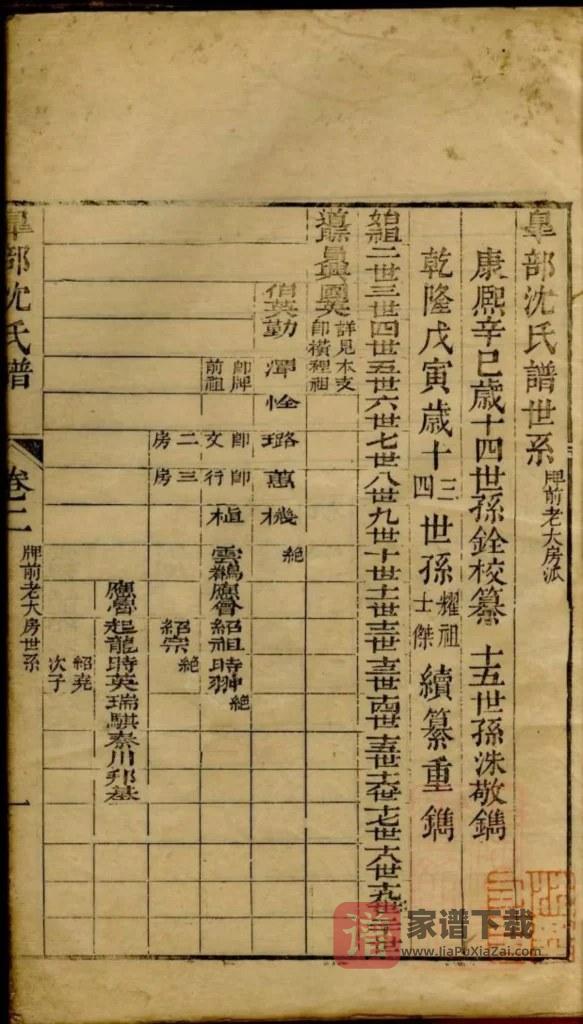 皐部沈氏譜世系 牌前老大房派
康熙辛巳歲十四世孫銓校纂 十五世孫洙敬鐫
乾隆戊寅歲十三四世孫耀祖士傑續纂重鐫
始祖二世三世四世五世六世七世八世九世十世十一世十二世十三世十四世十五世十六世十七世十八世十九世二十世
國英 詳見本支
即橫裡祖
伯英勤潭怡璐萬機絕
即牌前祖
植雲鵷應會紹祖時翀絕
即文二房
即行三房
紹宗絕
應霄起龍時英瑞騏秦川邦基
紹堯次子
皐部沈氏譜 卷二 牌前老大房世系 一
家谱下载
www.JiaPuXiaZai.com